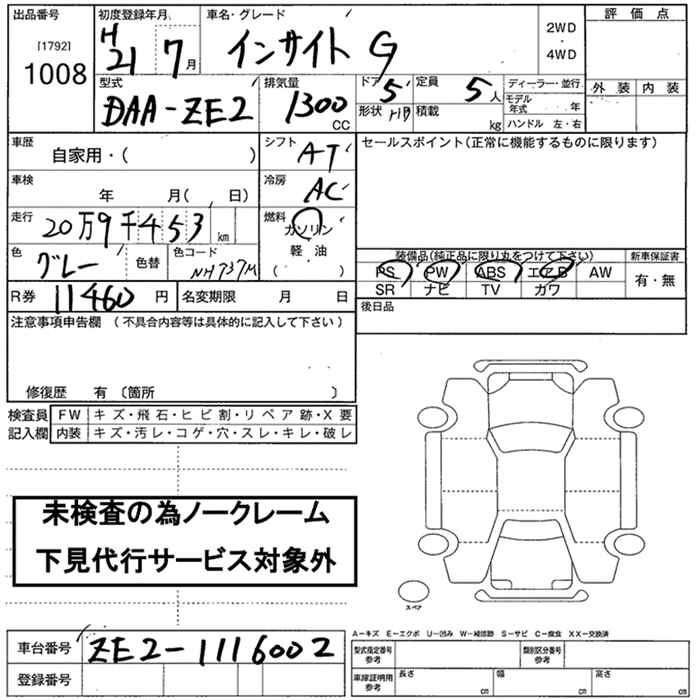 出品番号 初度登録年月 車名・グレード 評価点
[1792] H 2WD
1008 21 7月 インサイト G ・
4WD
型式 排気量 ドア 5 定員 5人 ディーラー・並行 外装 内装
DAA-ZE2 1300 CC 形状 HB 積載 kg モデル年式 年
ハンドル 左・右
車歴 シフト AT セールスポイント(正常に機能するものに限ります)
自家用・( )
車検 年 月( 日) 冷房 AC
走行 20万9千453 km 燃料 ガソリン
軽油
( )
色 グレー 色替 色コード NH737M 装備品(純正品に限り丸をつけて下さい) 新車保証書
PS PW ABS エアB AW 有・無
R券 11460円 名変期限 月 日 SR ナビ TV カワ
注意事項申告欄 (不具合内容等は具体的に記入して下さい) 後日品
修復歴 有 〔箇所 〕
検査員 FW キズ・飛石・ヒビ割・リペア跡・X要
記入欄 内装 キズ・汚レ・コゲ・穴・スレ・キレ・破レ
未検査の為ノークレーム
下見代行サービス対象外
スペア
A-キズ E-エクボ U-凹み W-補修跡 S-サビ C-腐食 XX-交換済
車台番号 ZE2-1116002 型式指定番号 参考 類別区分番号 参考
登録番号 車庫証明用 参考 長さ cm 幅 cm 高さ cm